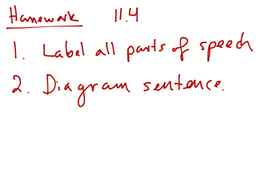 Homework 11.4
1. Label all parts of speech
2. Diagram sentence.